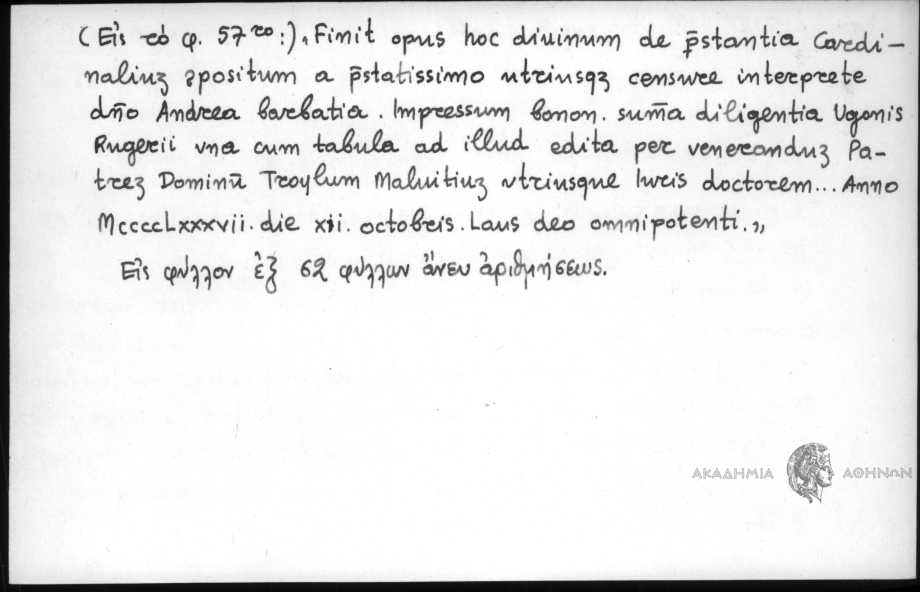 (Εἰς τὸ φ. 57το:) „Finit opus hoc diuinum de p̄stantia Cardi-
naliuꝫ ꝯpositum a p̄statissimo utriusqꝫ censure interprete
dño Andrea barbatia. Impressum bonon. sum̄a diligentia Ugonis
Rugerii vna cum tabula ad illud edita per veneranduꝫ Pa-
treꝫ Dominū Troylum Maluitiuꝫ vtriusque Iuris doctorem... Anno
MccccLxxxvii. die xii. octobris. Laus deo omnipotenti.„
Εἰς φύλλον ἐξ 62 φύλλων ἄνευ ἀριθμήσεως.
ΑΚΑΔΗΜΙΑ ΑΘΗΝΩΝ